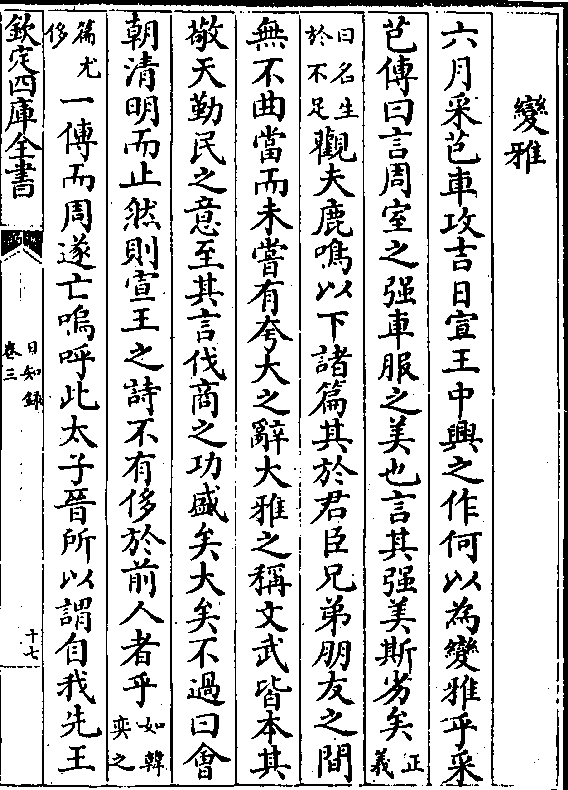 變雅
六月采芑車攻吉日宣王中興之作何以為變雅乎采
芑傳曰言周室之强車服之美也言其强美斯劣矣正義
曰名生於不足觀夫鹿鳴以下諸篇其於君臣兄弟朋友之間
無不曲當而未嘗有夸大之辭大雅之稱文武皆本其
敬天勤民之意至其言伐商之功盛矣大矣不過曰會
朝清明而止然則宣王之詩不有侈於前人者乎如韓奕之
篇尤侈一傳而周遂亡嗚呼此太子晉所以謂自我先王
欽定四庫全書
日知録
卷三
十七